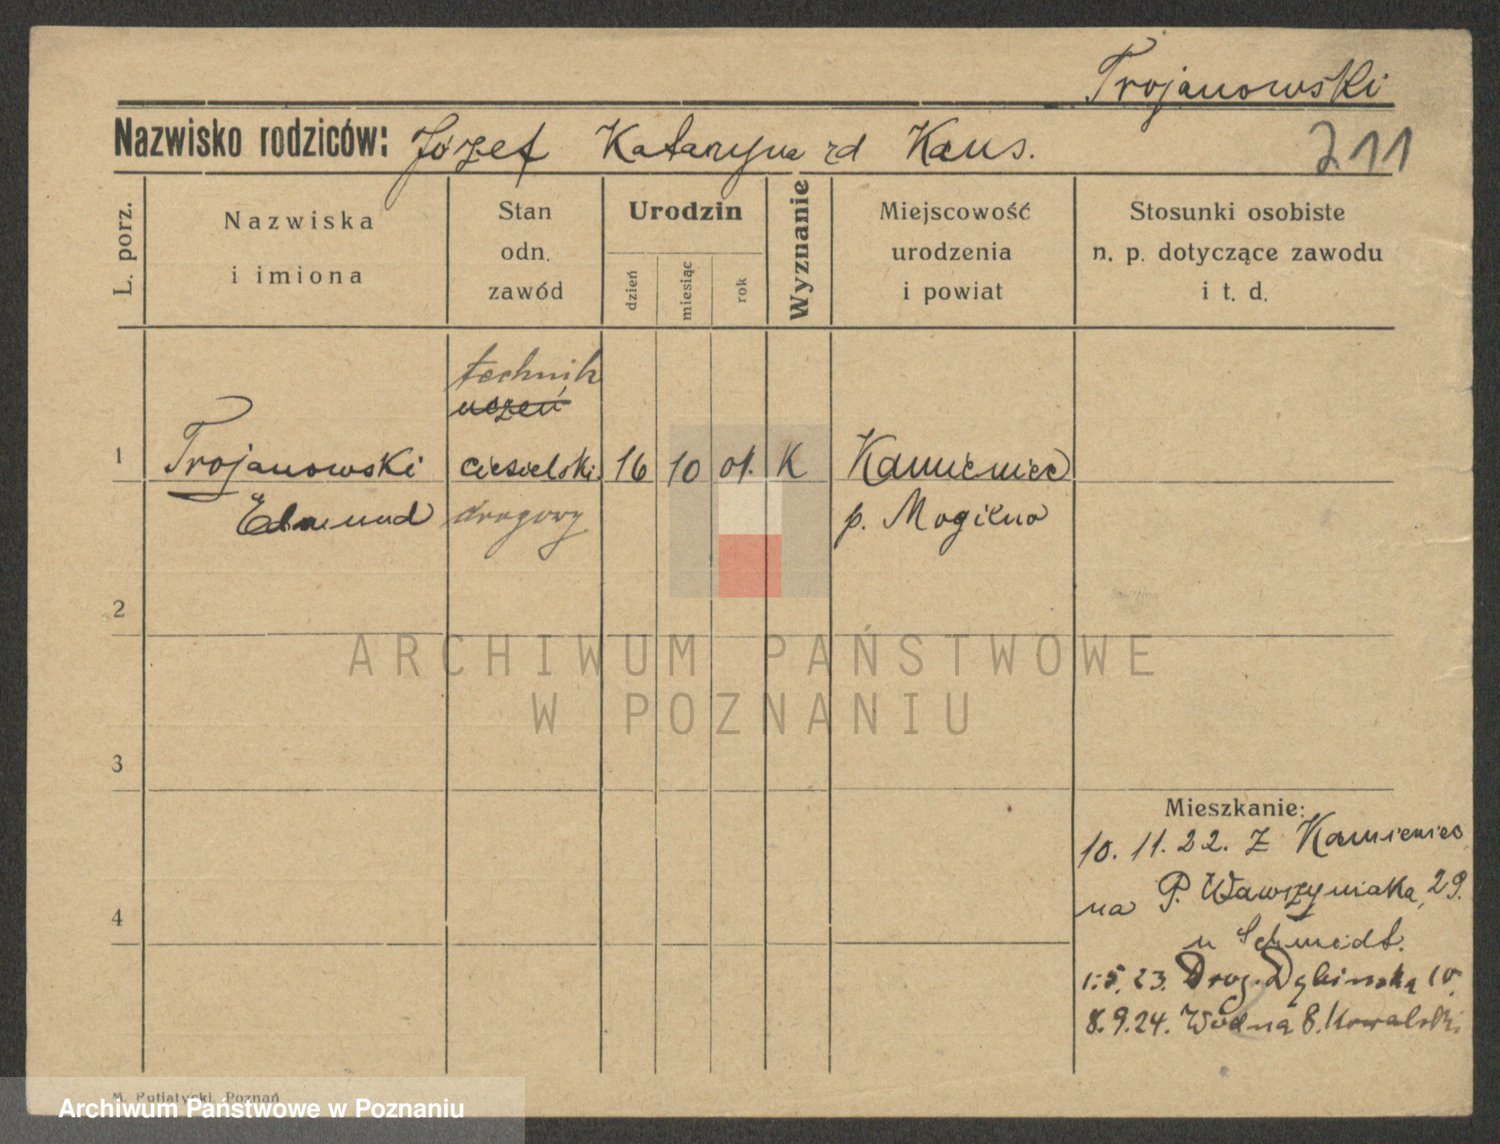 Trojanowski
Nazwisko rodziców: Józef Katarzyna zd Kaus.
211
L. porz.
Nazwiska
i imiona
Stan
odn.
zawód
Urodzin
dzień
miesiąc
rok
Wyznanie
Miejscowość
urodzenia
i powiat
Stosunki osobiste
n. p. dotyczące zawodu
i t. d.
technik
uczeń
1 Trojanowski ciesielski 16 10 01. K Kamieniec
Edmund drogowy p. Mogilno
2
3
4
Mieszkanie:
10. 11. 22. z Kamieniec
na P. Wawrzyniaka 29.
u Schmidt.
1.5.23. Drog. Dębinska 10.
8.9.24. Wodna 8. Kowalski
ARCHIWUM PAŃSTWOWE
W POZNANIU
M. Putiatycki, Poznań
Archiwum Państwowe w Poznaniu